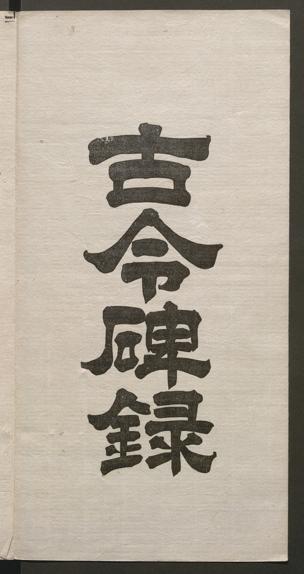 古今碑録